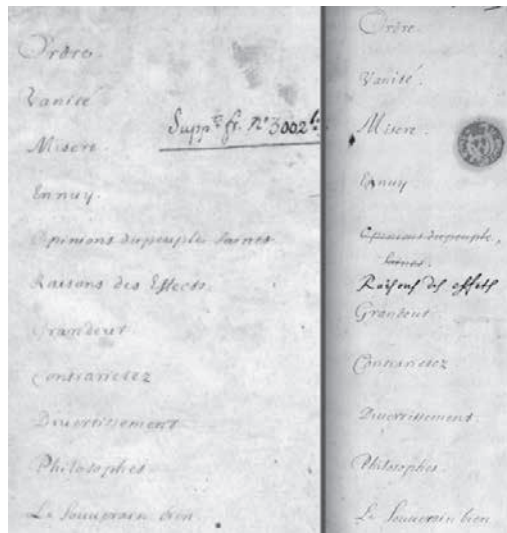 Ordre.
Vanité
Misere.
Suppt fr. no 3002
Ennuy.
Opinions du peuple Saines
Raisons des Effects.
Grandeur
Contrarietez
Divertissement
Philosophes
Le Souverain bien
Ordre.
Vanité.
Misere.
Ennuy
Opinions du peuple,
saines.
Raisons des effects
Grandeur
Contrarietez
Divertissement.
Philosophes.
Le Souverain bien